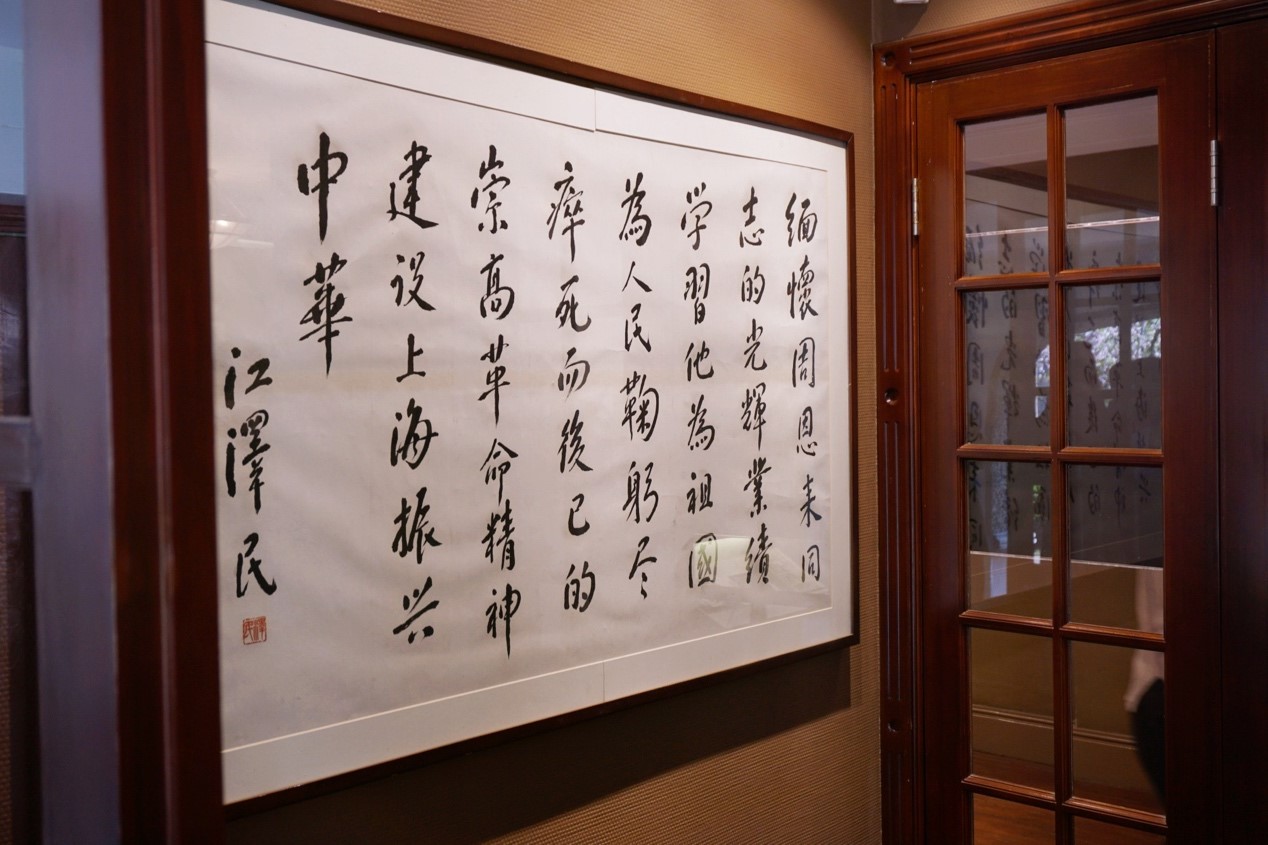 缅懷周恩来同
志的光輝業績
学習他為祖國
為人民鞠躬尽
瘁死而後已的
崇高革命精神
建设上海振兴
中華
江澤民